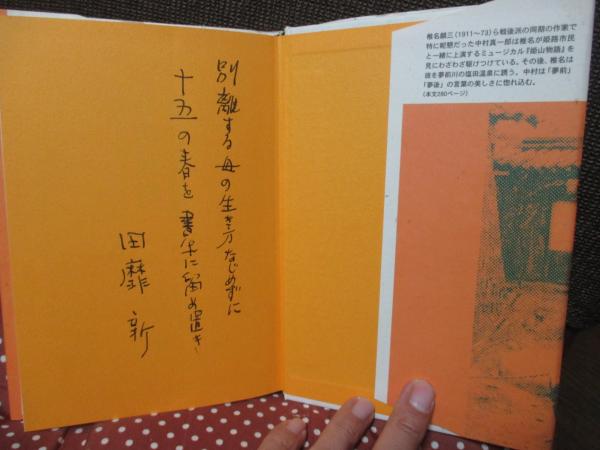 別離する母の生き方なじめずに
十五の春を書架に留め置き
田靡 新
椎名麟三(1911〜73)ら戦後派の同期の作家で
特に昵懇だった中村真一郎は椎名が姫路市民
と一緒に上演するミュージカル『姫山物語』を
見にわざわざ駆けつけている。その後、椎名は
彼を夢前川の塩田温泉に誘う。中村は「夢前」
「夢後」の言葉の美しさに惚れ込む。
(本文280ページ)